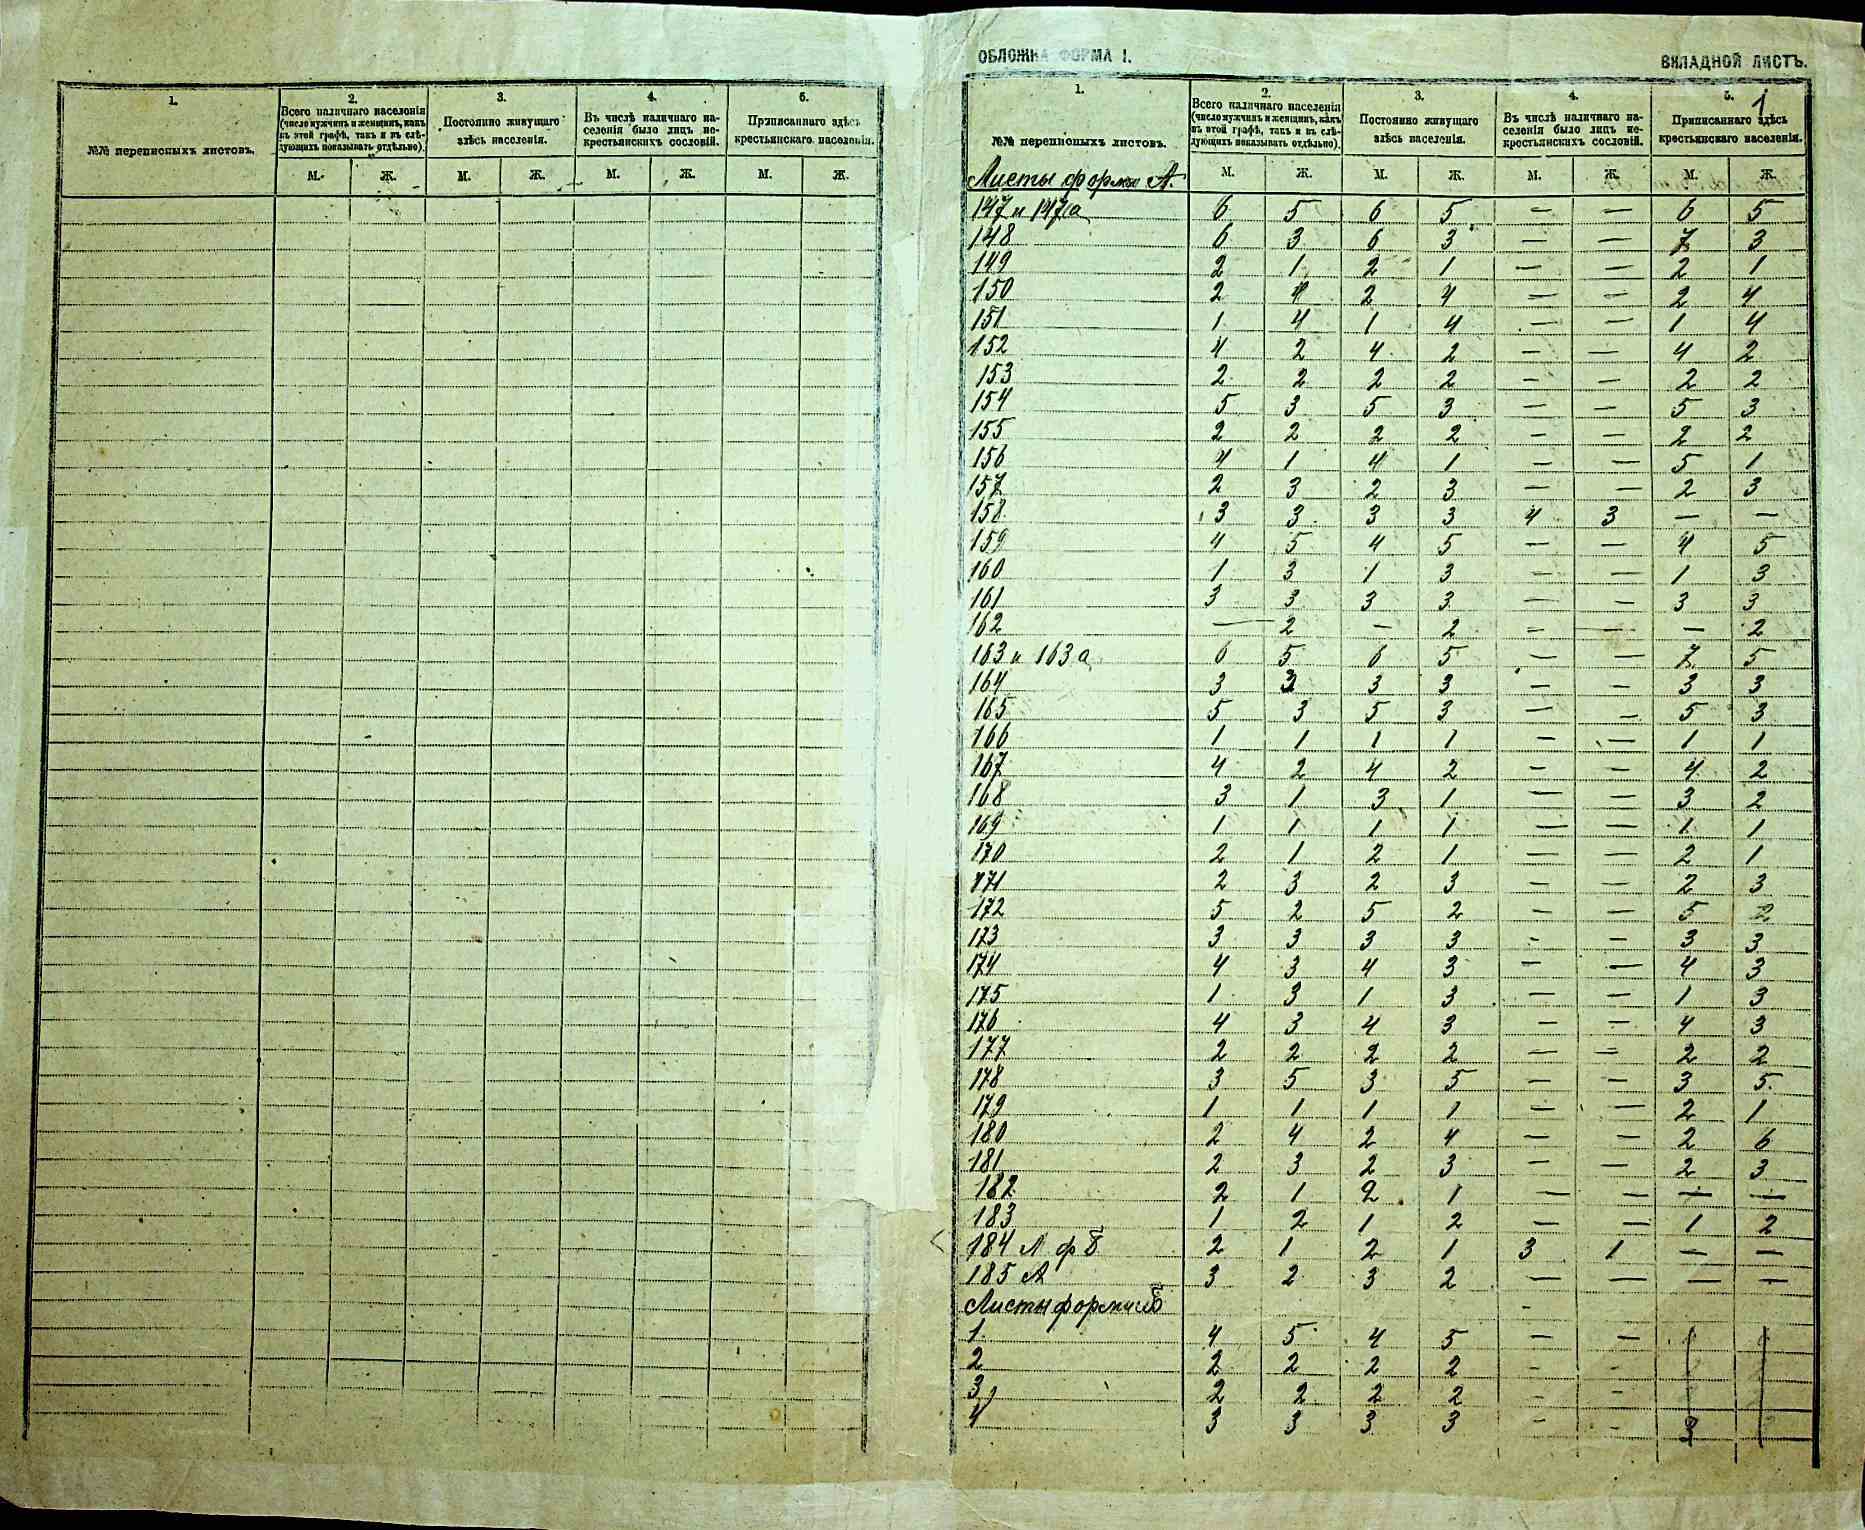 1.
2.
3.
4.
5.
№№ переписныхъ листовъ.
Всего наличнаго населенія
(число мужчинъ и женщинъ, какъ
въ этой графѣ, такъ и въ слѣ-
дующихъ показывать отдѣльно).
Постоянно живущаго
здѣсь населенія.
Въ числѣ наличнаго на-
селенія было лицъ не-
крестьянскихъ сословій.
Приписаннаго здѣсь
крестьянскаго населенія.
М. Ж. М. Ж. М. Ж. М. Ж.
ОБЛОЖКА ФОРМА I. ВКЛАДНОЙ ЛИСТЪ.
1
1.
2.
3.
4.
5.
№№ переписныхъ листовъ.
Всего наличнаго населенія
(число мужчинъ и женщинъ, какъ
въ этой графѣ, такъ и въ слѣ-
дующихъ показывать отдѣльно).
Постоянно живущаго
здѣсь населенія.
Въ числѣ наличнаго на-
селенія было лицъ не-
крестьянскихъ сословій.
Приписаннаго здѣсь
крестьянскаго населенія.
М. Ж. М. Ж. М. Ж. М. Ж.
Листы формы А.
147 и 147а 6 5 6 5 — — 6 5
148 6 3 6 3 — — 7 3
149 2 1 2 1 — — 2 1
150 2 4 2 4 — — 2 4
151 1 4 1 4 — — 1 4
152 4 2 4 2 — — 4 2
153 2 2 2 2 — — 2 2
154 5 3 5 3 — — 5 3
155 2 2 2 2 — — 2 2
156 4 1 4 1 — — 5 1
157 2 3 2 3 — — 2 3
158 3 3 3 3 4 3 — —
159 4 5 4 5 — — 4 5
160 1 3 1 3 — — 1 3
161 3 3 3 3 — — 3 3
162 — 2 — 2 — — — 2
163 и 163а 6 5 6 5 — — 7 5
164 3 3 3 3 — — 3 3
165 5 3 5 3 — — 5 3
166 1 1 1 1 — — 1 1
167 4 2 4 2 — — 4 2
168 3 1 3 1 — — 3 2
169 1 1 1 1 — — 1 1
170 2 1 2 1 — — 2 1
171 2 3 2 3 — — 2 3
172 5 2 5 2 — — 5 2
173 3 3 3 3 — — 3 3
174 4 3 4 3 — — 4 3
175 1 3 1 3 — — 1 3
176 4 3 4 3 — — 4 3
177 2 2 2 2 — — 2 2
178 3 5 3 5 — — 3 5
179 1 1 1 1 — — 2 1
180 2 4 2 4 — — 2 6
181 2 3 2 3 — — 2 3
182 2 1 2 1 — — — —
183 1 2 1 2 — — 1 2
184 Л ф Б 2 1 2 1 3 1 — —
185 А 3 2 3 2 — — — —
Листы формы Б
1 4 5 4 5 — —
2 2 2 2 2 - -
3 2 2 2 2 - -
4 3 3 3 3 - - 3